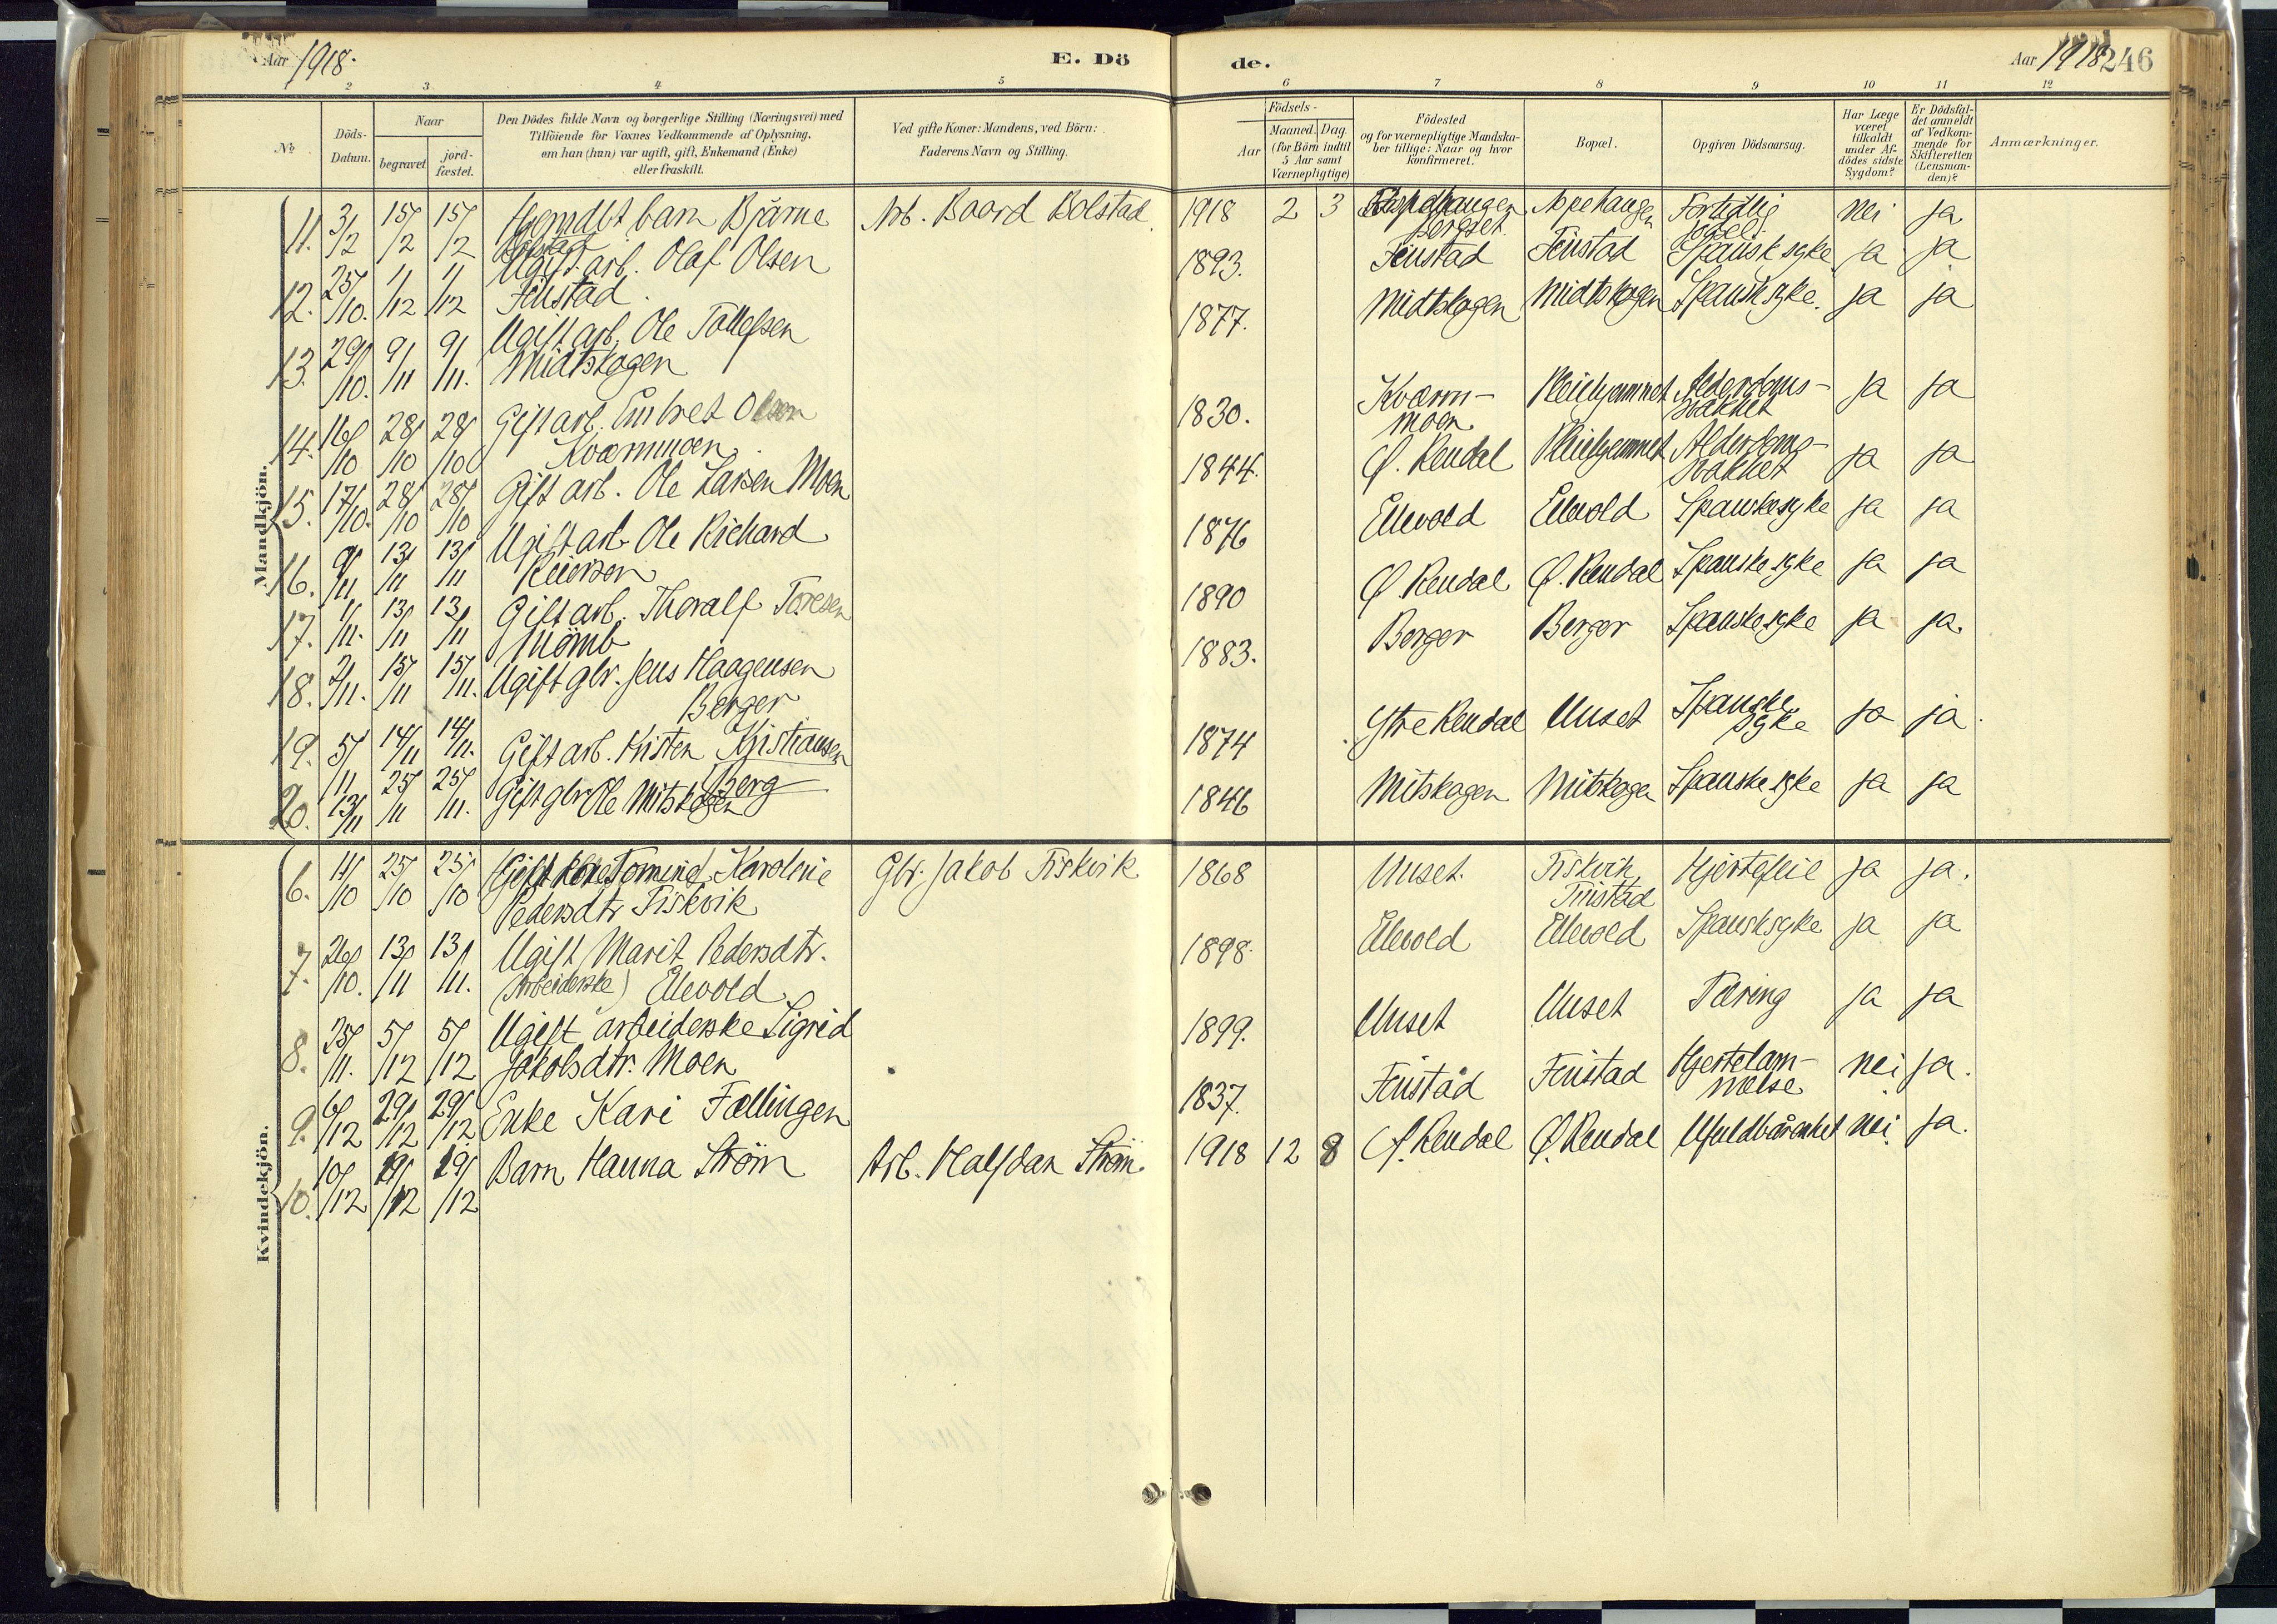 Aar 1918.
E. Dö
de.
Aar 1918
246
1 2 3 4 5 6 7 8 9 10 11 12
No
Döds-Datum.
Naar
begravet
jord-fæstet.
Den Dödes fulde Navn og borgerlige Stilling (Næringsvei) med
Tilföiende for Voxnes Vedkommende af Oplysning,
om han (hun) var ugift, gift, Enkemand (Enke)
eller fraskilt.
Ved gifte Koner: Mandens, ved Börn:
Faderens Navn og Stilling.
Födsels-
Aar
Maaned. Dag.
(for Börn indtil
5 Aar samt
Værnepligtige)
Födested
og for værnepligtige Mandska-
ber tillige: Naar og hvor
konfirmeret.
Bopæl.
Opgiven Dödsaarsag.
Har Læge
været
tilkaldt
under Af-
dödes sidste
Sygdom?
Er Dödsfal-
det anmeldt
af Vedkom-
mende for
Skifteretten
(Lensman-
den)?
Anmærkninger.
Mandkjön.
11. 3/2 15/2 15/2 barn Bjårne Arb. Baard Bolstad. 1918 2 3 Apehaugen Fortidlig nei ja
Bolstad Bergset födsel.
12. 25/10. 1/12 1/12 Ugift arb. Olaf Olsen 1893. Finstad Finstad Spansk syke ja ja
Finstad.
13. 29/10. 9/11 9/11. Ugift arb. Ole Tollefsen 1877. Midtskogen Midtskogen Spansk syke. ja ja
Midtskogen
14. 16/10 28/10 28/10 Gift arb. Embret Olsen 1830. Kværn- Pleiehjemmet Alderdoms- ja ja
Kværnmoen moen svakhet
15. 17/10. 28/10 28/10 Gift arb. Ole Larsen Moen 1844. Ø. Rendal Pleiehjemmet Alderdoms- ja ja
svakhet
16. 9/11 13/11 13/11 Ugift arb. Ole Richard 1876 Ellevold Ellevold Spanskesyke ja ja
Reiersen
17. 1/11. 13/11 13/11 Gift arb. Thoralf Toresen 1890 Ø Rendal Ø. Rendal Spanske syke ja ja
18. 2/11. 15/11 15/11. Ugift gbr. Jens Haagensen 1883. Berger Berger Spanske syke ja ja.
Berger
19. 5/11 14/11 14/11. Gift arb. Kristen Kristiansen 1874 Ytre Rendal Unset Spanske ja ja.
Berg syke
20. 13/11 25/11 25/11. Gift gbr Ole Mitskogen 1846 Mitskogen Mitskogen Spanske syke ja ja
Kvindekjön.
6. 14/10 25/10 25/10 Gift Karoline Gbr. Jakob Fiskvik 1868 Unset. Fiskvik Hjertefeil ja ja.
Pedersdtr Fiskvik Finstad
7. 26/10. 13/11 13/11. Ugift Marit Pedersdtr. 1898. Ellevold Ellevold Spansksyke ja ja
(Arbeiderske) Ellevold
8. 25/11. 5/12 5/12 Ugift arbeiderske Sigrid 1899. Unset Unset Tæring ja ja
Jakobsdtr. Moen
9. 6/12 29/12 29/12. Enke Kari Fællingen 1837. Finstad Finstad Hjertelam- nei ja.
melse
10. 10/12 29/12 29/12 Barn Hanna Strøm Arb. Halfdan Strøm. 1918 12 8 Ø. Rendal Ø. Rendal Ufuldbårenhet nei. ja.